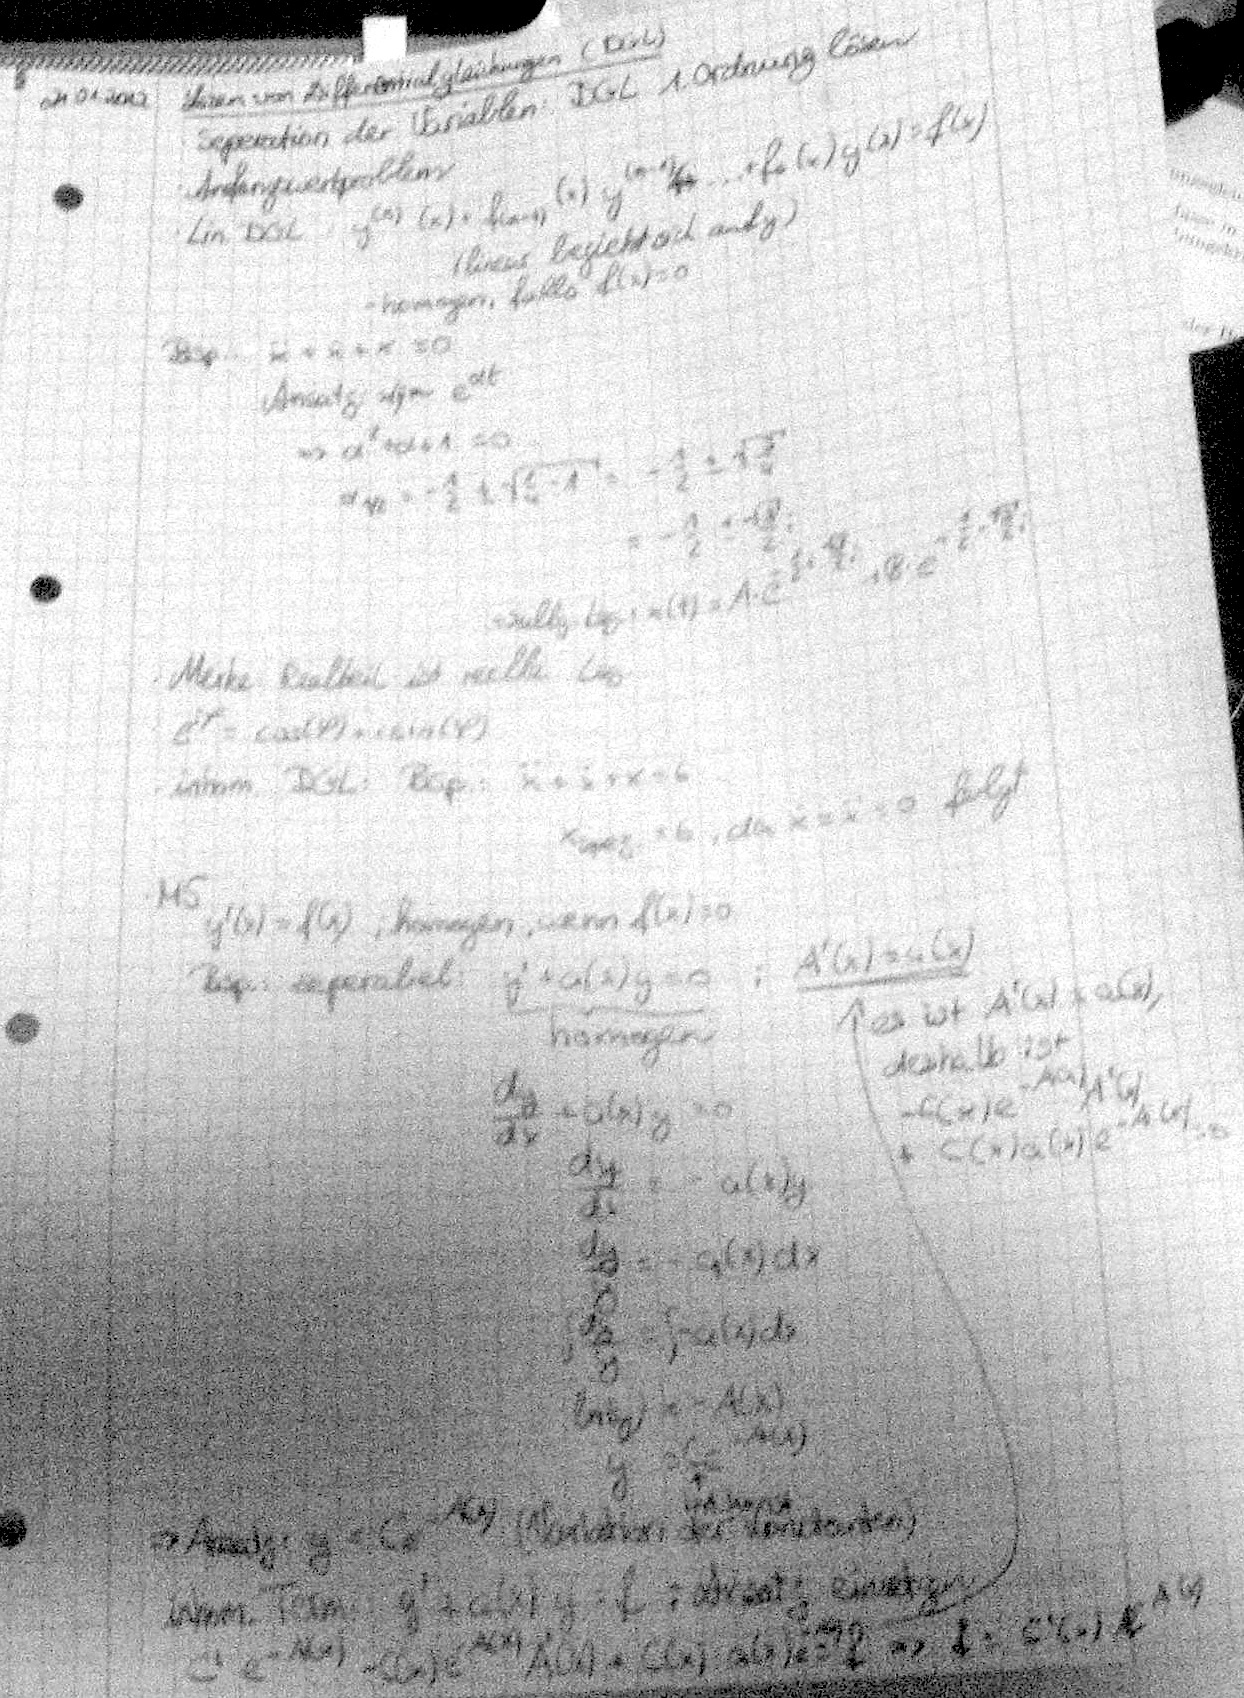 Lösen von Differentialgleichungen (DGL)
Seperation der Variablen: DGL 1. Ordnung lösen
· Anfangswertproblem
· Lin. DGL: y^(n) (x) + f_(n-1) (x) y^(n-1) + ... + f_0 (x) y(x) = f(x)
(linear bezieht sich auf y)
- homogen, falls f(x)=0
Bsp.: ẍ + ẋ + x = 0
Ansatz: e^αt
=> α² + α + 1 = 0
α_1/2 = -1/2 ± √(1/4 - 1) = -1/2 ± √
= -1/2 ± i
Lsg.: x(t) = A · e + B · e
· Merke: Realteil ist reelle Lsg.
e^iφ = cos(φ) + i sin(φ)
· inhom. DGL: Bsp.: ẍ + ẋ + x = 6
x = 6, da ẋ = ẍ = 0 folgt
· HS
y'(x) = f(x), homogen, wenn f(x)=0
Bsp.: seperabel: y' + a(x)y = 0 ; A'(x) = a(x)
homogen
es ist A'(x) = a(x),
deshalb ist
-C(x)e^-A(x) A'(x)
+ C(x)a(x)e^-A(x) = 0
dy/dx + a(x)y = 0
dy/dx = - a(x)y
dy/y = - a(x)dx
∫ dy/y = ∫ -a(x)dx
ln(y) = - A(x)
y = C e^-A(x)
=> Ansatz: y = C e^-A(x) (Variation der Konstanten)
Inhom. Term: y' + a(x) y = f ; Ansatz einsetzen
C' e^-A(x) - C(x) e^-A(x) A'(x) + C(x) a(x) e^-A(x) = f =>